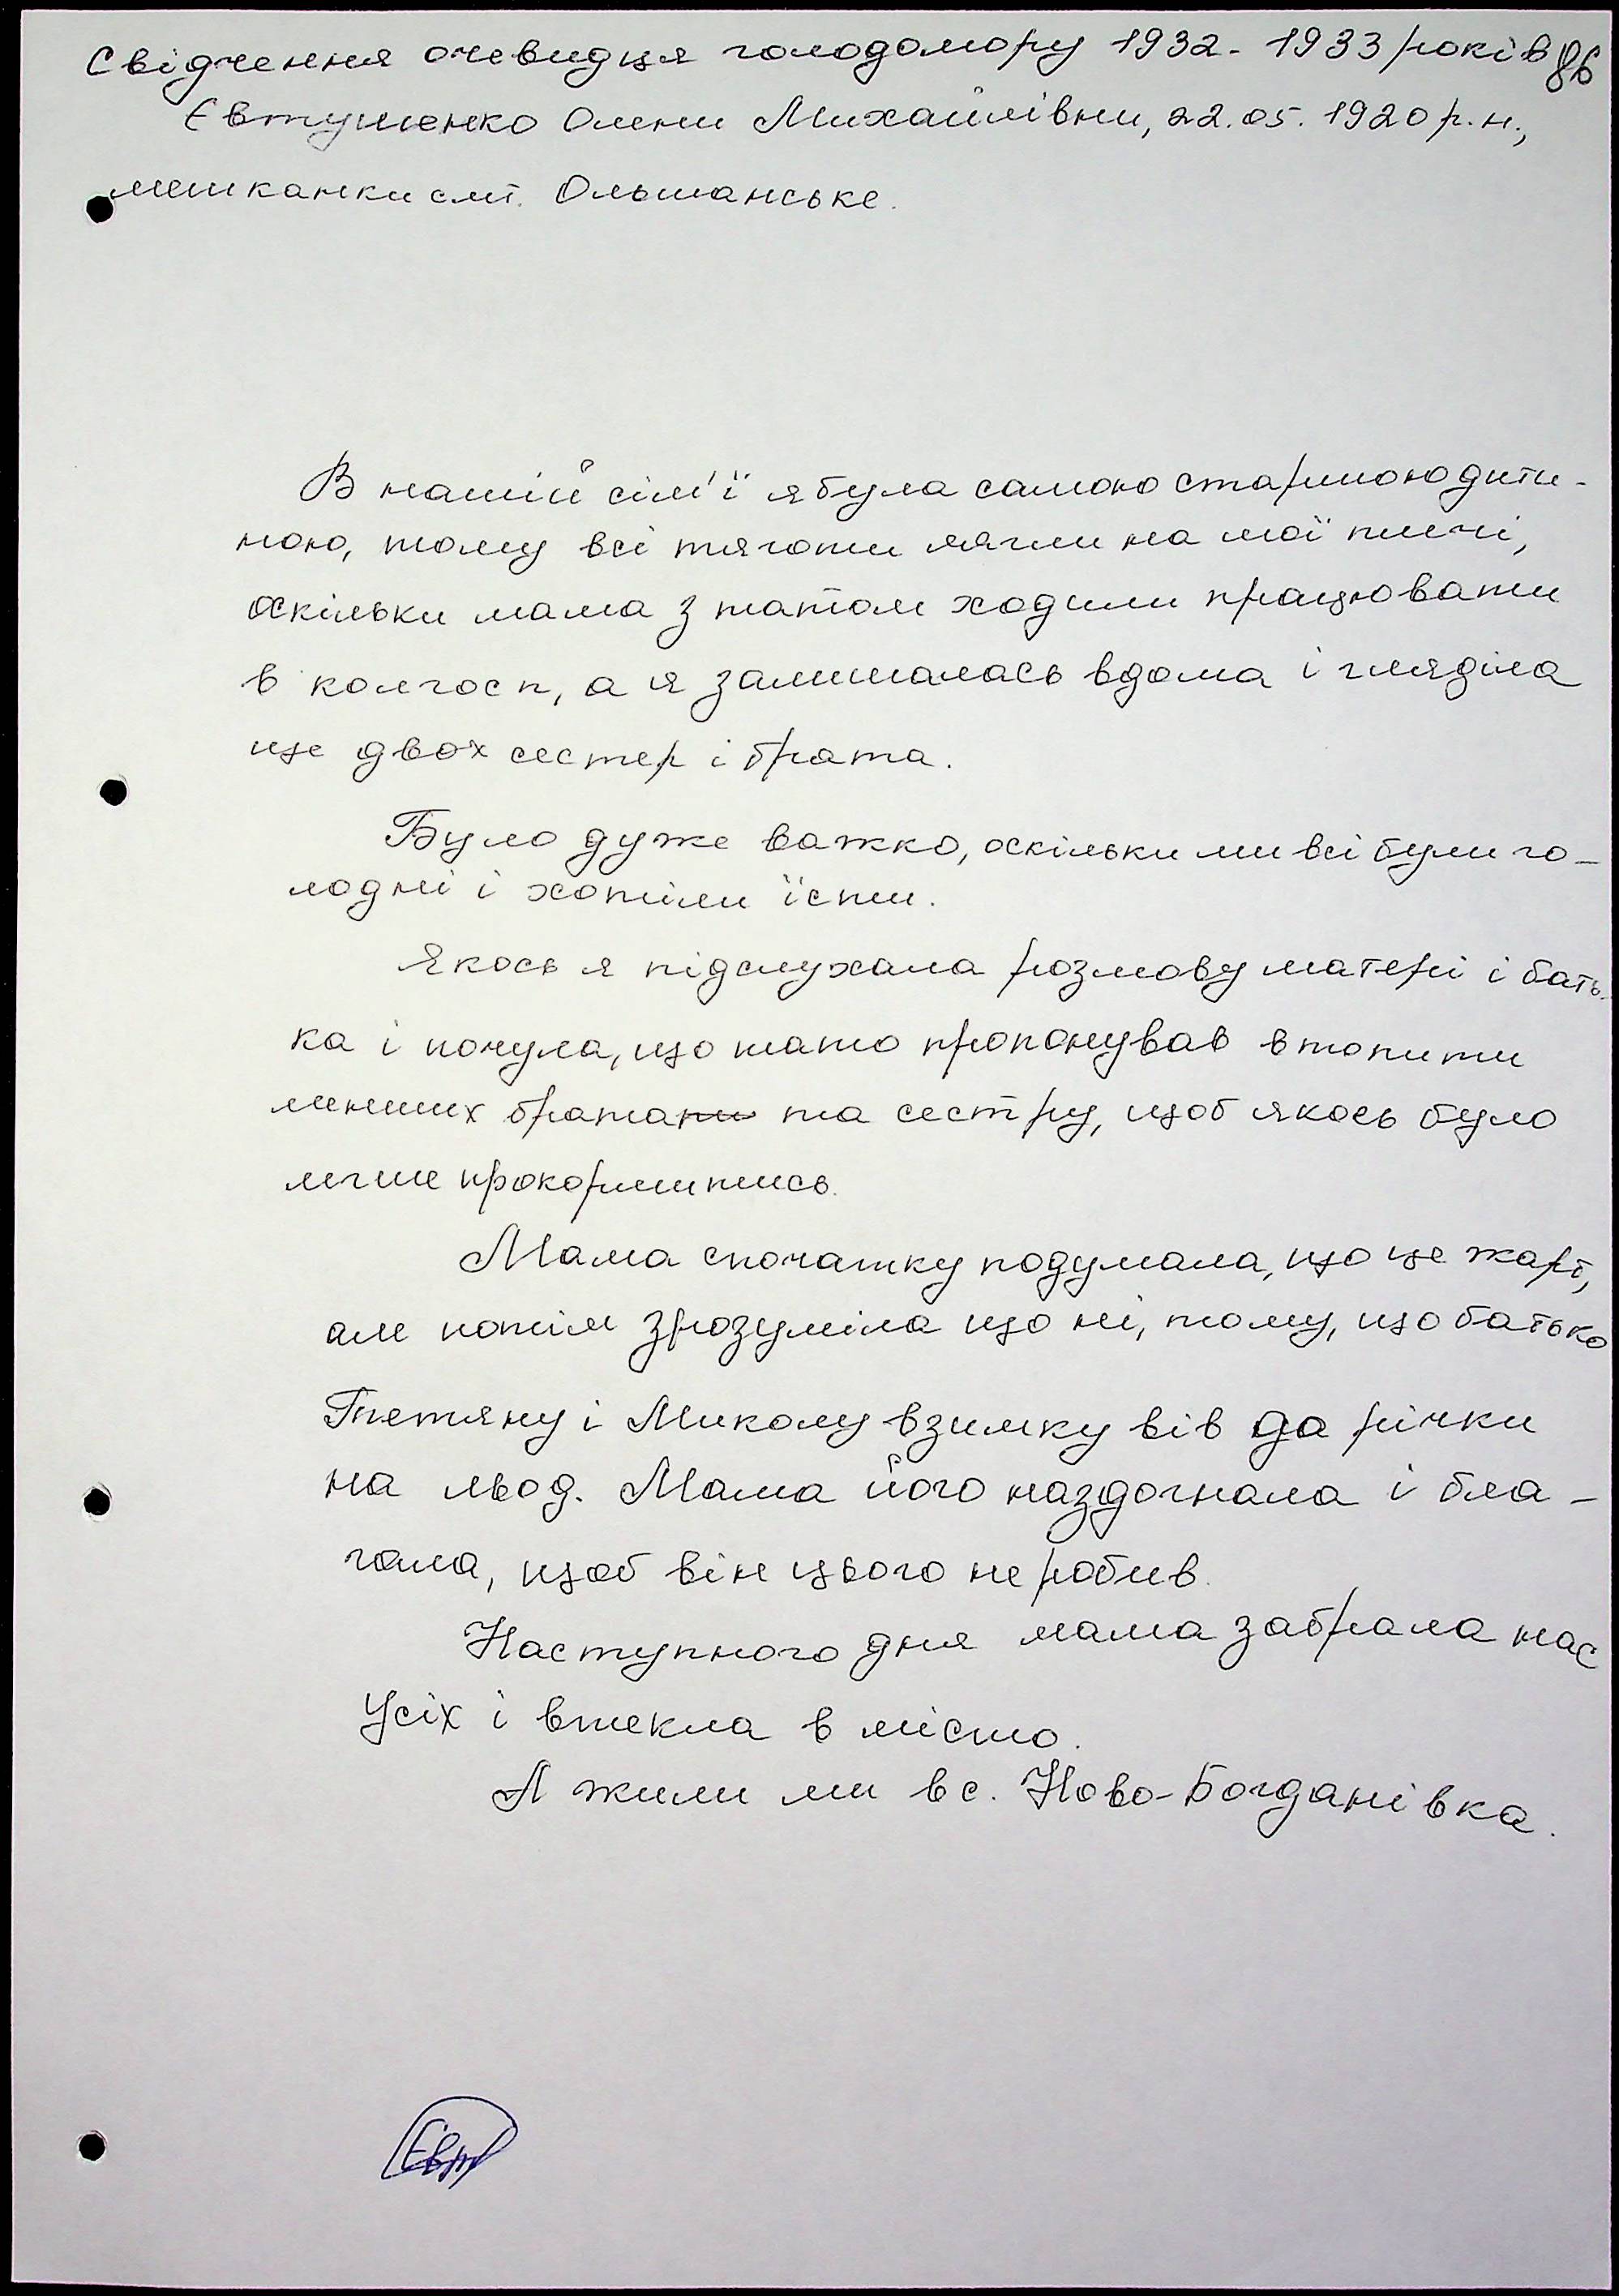 Свідчення очевидця голодомору 1932-1933 років 86
Євтушенко Олени Михайлівни, 22.05.1920 р.н.,
мешканки смт. Ольшанське.
В нашій сім'ї я була самою старшою дити-
ною, тому всі тяготи лягли на мої плечі,
оскільки мама з татом ходили працювати
в колгосп, а я залишалась вдома і гляділа
ще двох сестер і брата.
Було дуже важко, оскільки ми всі були го-
лодні і хотіли їсти.
Якось я підслухала розмову матері і бать-
ка і почула, що тато пропонував втопити
менших брата та сестру, щоб якось було
легше прокормитись.
Мама спочатку подумала, що це жарт,
але потім зрозуміла що ні, тому, що батько
Тетяну і Миколу взимку вів до річки
на льод. Мама його наздогнала і бла-
гала, щоб він цього не робив.
Наступного дня мама забрала нас
усіх і втекла в місто.
А жили ми в с. Ново-Богданівка.
Євт